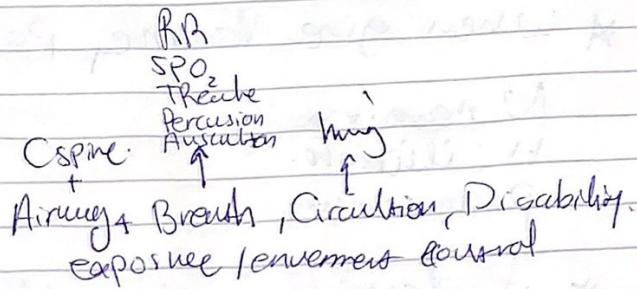 RR
SPO₂
TReache
Percusion
Auscultion
Cspine.
+
Airway + Breath, Circultion, Disability.
exposure / envernment control